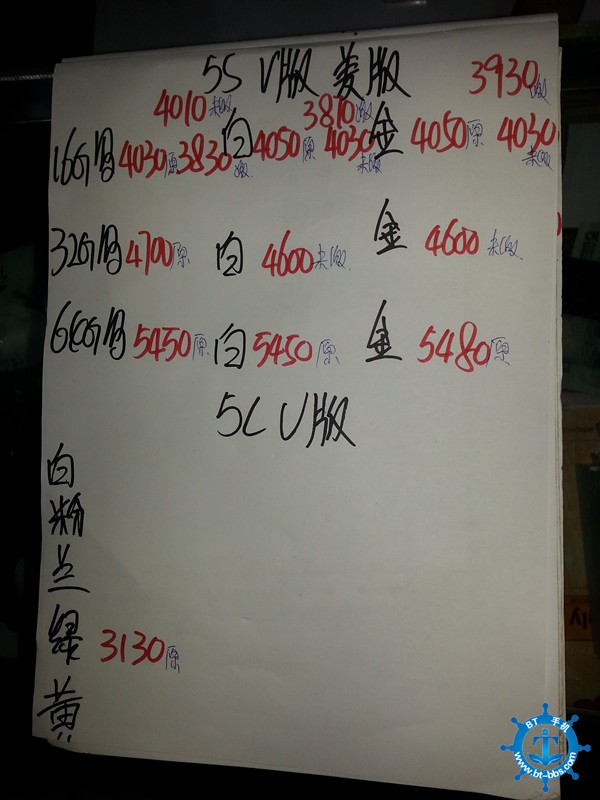 5S V版 美版 3930激
4010未激 3810激
16G黑 4030原 3830激 白 4050原 4030未激 金 4050原 4030未激
32G黑 4700原 白 4600未激 金 4600未激
64G黑 5450原 白 5450原 金 5480原
5C V版
白
粉
兰
绿 3130原
黄
BT 手机
www.bt-bbs.com